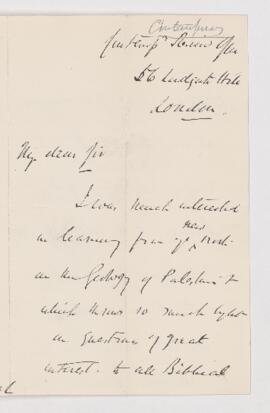 Contemporary
Contemp^y Review Office
56 Ludgate Hill
London.
My dear Sir
I was much interested
in learning from y^r new Book
on the Geology of Palestine &
which throws so much light
on questions of great
interest to all Biblical